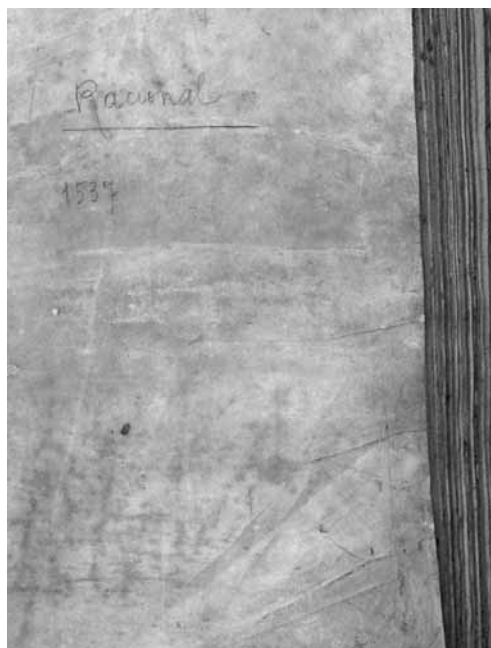 Racional
1537